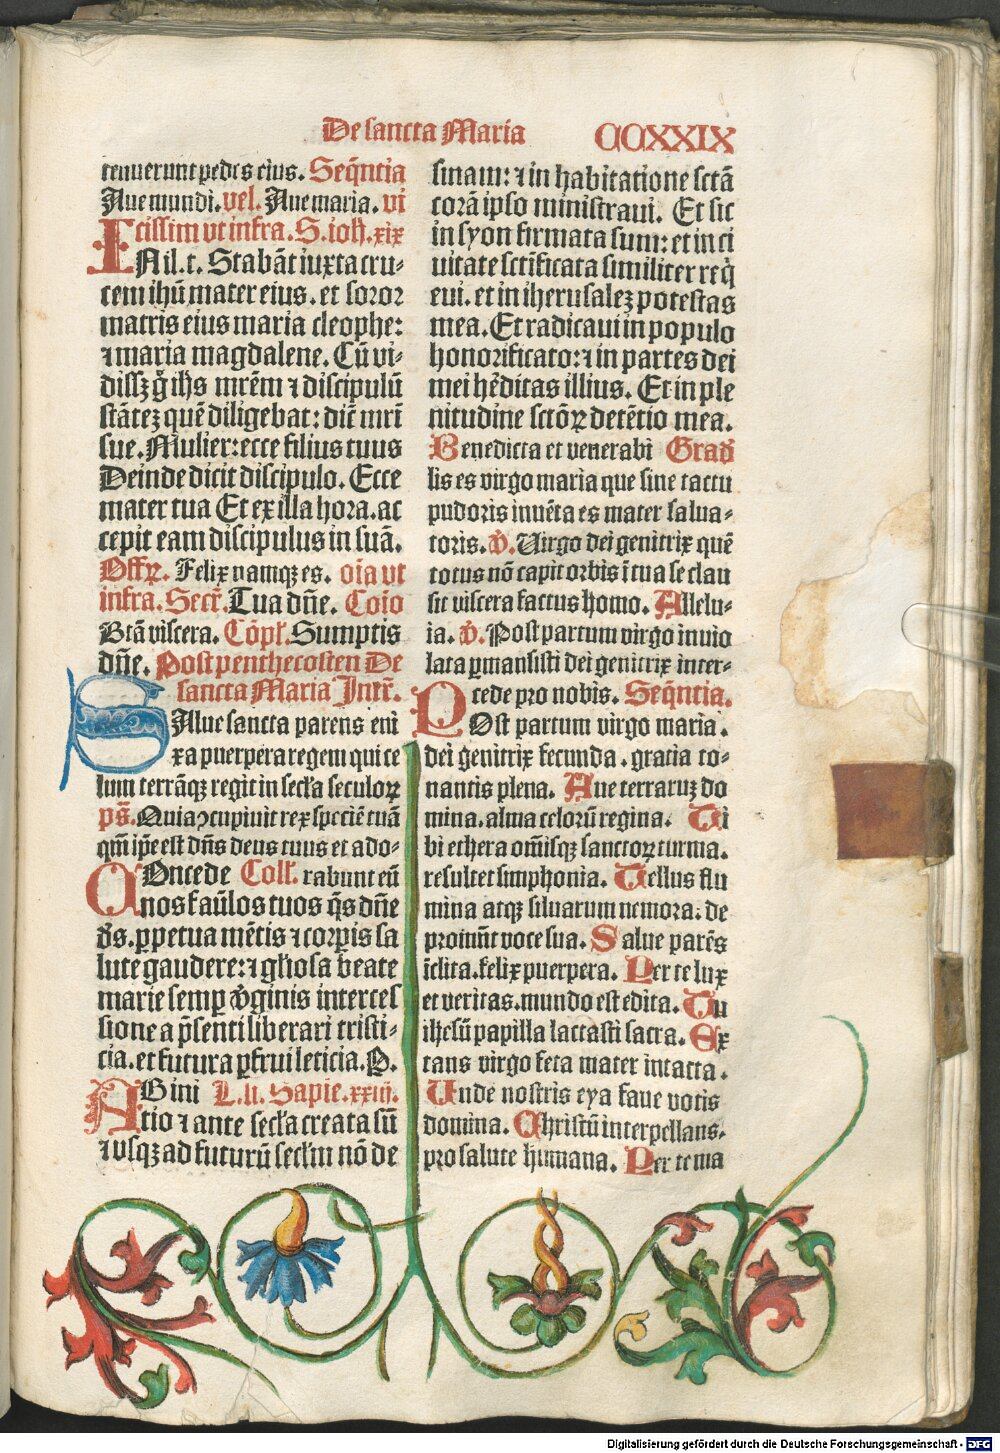 De sancta Maria CCXXIX
tenuerunt pedes eius. Seq̄ntia
Aue mundi. vel. Aue maria. vi
cissim vt infra. S. ioh. xix
IN il.t. Stabāt iuxta cru-
cem ihū mater eius. et soror
matris eius maria cleophe:
⁊ maria magdalene. Cū vi-
dissꝫ g̊ ihs mrēm ⁊ discipulū
stāteꝫ quē diligebat: dic̄ mr̄i
sue. Mulier: ecce filius tuus
Deinde dicit discipulo. Ecce
mater tua Et ex illa hora. ac
cepit eam discipulus in suā.
Offꝝ. Felix namqꝫ es. oīa vt
infra. Secr̄. Tua dn̄e. Cōio
Btā viscera. Cōpl̄. Sumptis
dn̄e. Post penthecosten De
sancta Maria Intr̄.
SAlue sancta parens eni
xa puerpera regem qui ce
lum terrāqꝫ regit in secl̄a seculoꝝ
ps̄. Quia ꝯcupiuit rex speciē tuā
qm̄ ip̄e est dn̄s deus tuus et ado-
COncede Coll̄. rabunt eū
nos faūlos tuos q̄s dn̄e
ds̄. ꝑpetua mētis ⁊ corꝑis sa
lute gaudere: ⁊ gl̄iosa beate
marie semꝑ v̄ginis interces
sione a p̄senti liberari tristi-
cia. et futura ꝑfrui leticia. P.
AB ini L.li. Sapie. xxiiij.
tio ⁊ ante secl̄a creata sū
⁊ vsqꝫ ad futurū secl̄m nō de
sinam: ⁊ in habitatione sctā
corā ipso ministraui. Et sic
in syon firmata sum: et in ci
uitate sctīficata similiter req̄
eui. et in iherusaleꝫ potestas
mea. Et radicaui in populo
honorificato: ⁊ in partes dei
mei hēditas illius. Et in ple
nitudine sctōꝝ detētio mea.
Benedicta et venerabi Grad̄
lis es virgo maria que sine tactu
pudoris inuēta es mater salua-
toris. v̄. Uirgo dei genitrix quē
totus nō capit orbis ī tua se clau
sit viscera factus homo. Allelu-
ia. v̄. Post partum virgo inuio
lata ꝑmansisti dei genitrix inter-
cede pro nobis. Seq̄ntia.
POst partum virgo maria.
dei genitrix fecunda. gratia to-
nantis plena. Aue terraruꝫ do
mina. alma celorū regina. Ti
bi ethera om̄isqꝫ sanctoꝝ turma.
resultet simphonia. Tellus flu
mina atqꝫ siluarum nemora. de
promūt voce sua. Salue parēs
īclita. felix puerpera. Per te lux
et veritas. mundo est edita. Tu
ihesū papilla lactasti sacra. Ex
tans virgo feta mater intacta.
Unde nostris eya faue votis
domina. Christū interpellans.
pro salute humana. Per te ma
Digitalisierung gefördert durch die Deutsche Forschungsgemeinschaft - DFG